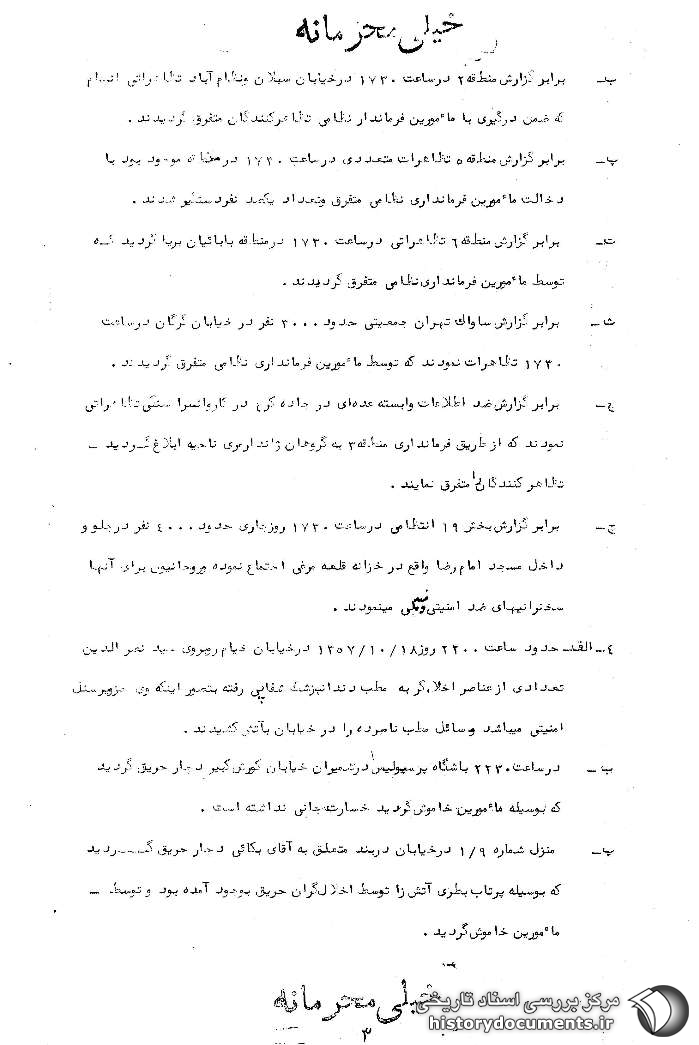 خیلی محرمانه
ب‌ـ برابر گزارش منطقه ۲ درساعت ۱۷۳۰ درخیابان سبلان ونظام آباد تظاهراتی انجام
که ضمن درگیری با مأمورین فرماندار نظامی تظاهرکنندگان متفرق گردیدند .
پ‌ـ برابر گزارش منطقه ۵ تظاهرات متعددی درساعت ۱۷۳۰ در منطقه موجود بود با
دخالت مأمورین فرمانداری نظامی متفرق وتعداد یکصد نفردستگیر شدند .
ت‌ـ برابر گزارش منطقه ۶ تظاهراتی درساعت ۱۷۳۰ درمنطقه بابائیان برپا گردید که
توسط مأمورین فرمانداری نظامی متفرق گردیدند .
ث‌ـ برابر گزارش ساواک تهران جمعیتی حدود ۳۰۰۰ نفر در خیابان گرگان درساعت
۱۷۳۰ تظاهرات نمودند که توسط مأمورین فرمانداری نظامی متفرق گردیدند .
ج‌ـ برابر گزارش ضد اطلاعات وابسته عده‌ای در جاده کرج در کاروانسرا سنگی تظاهراتی
نمودند که از طریق فرمانداری منطقه ۳ به گروهان ژاندارمری ناحیه ابلاغ گردید ـ
تظاهر کنندگان را متفرق نمایند .
چ‌ـ برابر گزارش بخش ۱۹ انتظامی درساعت ۱۷۳۰ روزجاری حدود ۴۰۰۰ نفر درجلو و
داخل مسجد امام رضا واقع در خزانه قلعه مرغی اجتماع نموده وروحانیون برای آنها
سخنرانیهای ضد امنیتی و مینمودند .
۴ـ الف‌ـ حدود ساعت ۲۲۰۰ روز ۱۳۵۷/۱۰/۱۸ درخیابان خیام روبروی سید نصرالدین
تعدادی از عناصر اخلالگر به مطب دندانپزشک شفایی رفته بتصور اینکه وی جزوپرسنل
امنیتی میباشد وسائل مطب نامبرده را در خیابان بآتش کشیدند .
ب‌ـ درساعت ۲۲۳۰ باشگاه پرسپولیس درشمیران خیابان کورش کبیر دچار حریق گردید
که بوسیله مأمورین خاموش گردید خسارت جانی نداشته است .
پ‌ـ منزل شماره ۱/۹ درخیابان دربند متعلق به آقای بکائی دچار حریق گردید
که بوسیله پرتاب بطری آتش زا توسط اخلالگران حریق بوجود آمده بود و توسط ـ
مأمورین خاموش گردید .
خیلی محرمانه
۳
مرکز بررسی اسناد تاریخی
historydocuments.ir